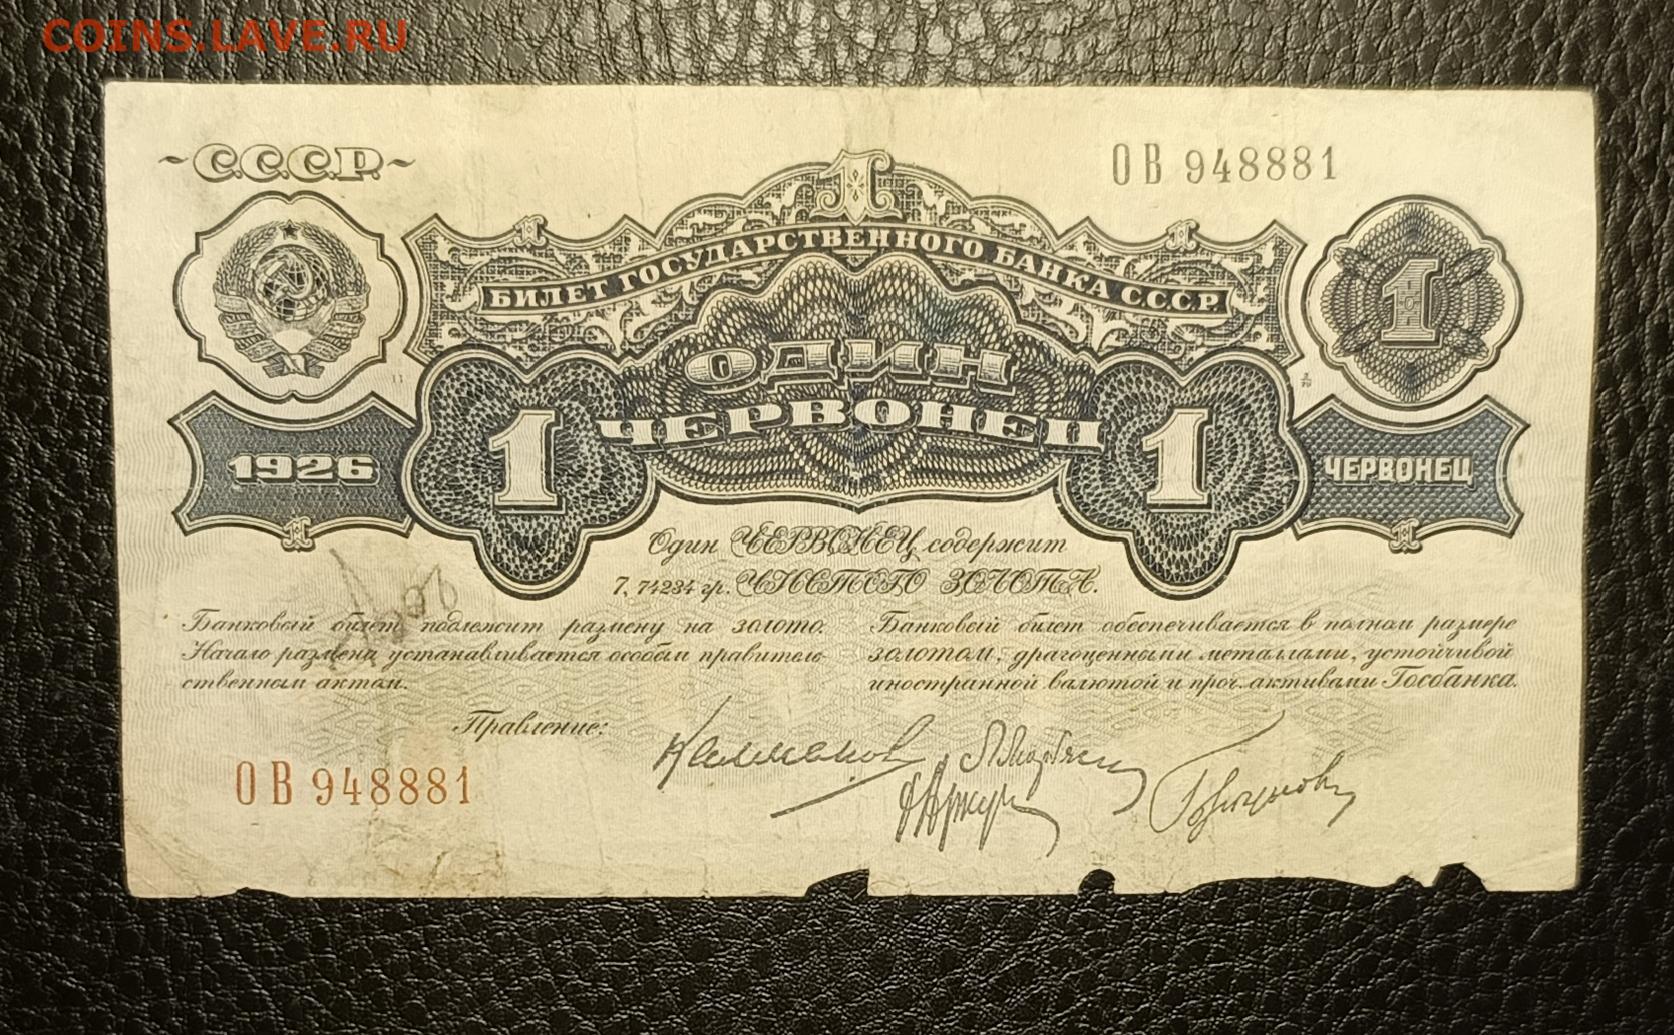 COINS.LAVE.RU
~С.С.С.Р.~
ОВ 948881
1
БИЛЕТ ГОСУДАРСТВЕННОГО БАНКА С.С.С.Р.
1
1
1
ОДИН
ЧЕРВОНЕЦ
1
1
1926
ЧЕРВОНЕЦ
1
1
Один ЧЕРВОНЕЦ содержит
7,74234 гр. ЧИСТОГО ЗОЛОТА.
Банковый билет подлежит размену на золото.
Начало размена устанавливается особым правитель-
ственным актом.
Банковый билет обеспечивается в полном размере
золотом, драгоценными металлами, устойчивой
иностранной валютой и проч. активами Госбанка.
Правление:
ОВ 948881